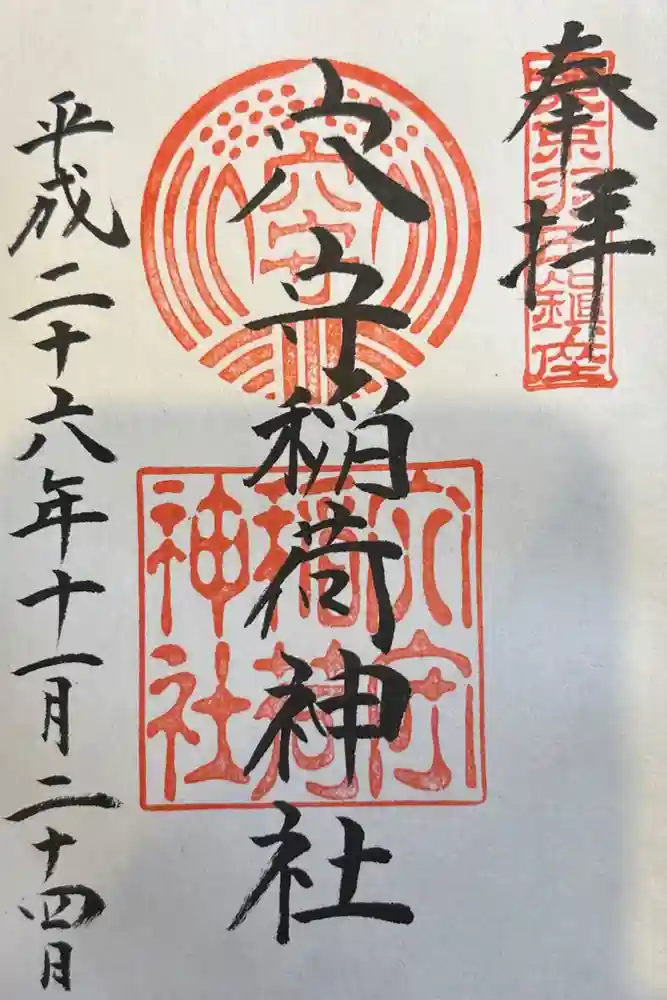 奉拝
東京羽田鎮座
穴守稲荷神社
穴守
穴守
稲荷
神社
平成二十六年十一月二十四日